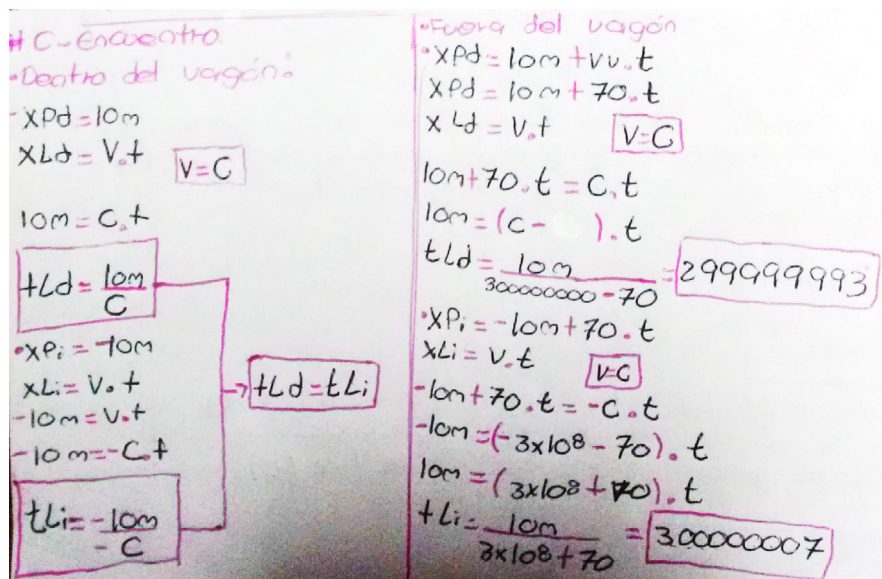 # C-Encuentro
•Dentro del vagón:
-XPd=10m
XLd=V.t
V=C
10m=C.t
tLd=10m/C
•XPi=-10m
XLi=V.t
-10m=V.t
-10m=-C.t
tLi=-10m/-C
→ tLd=tLi
•Fuera del vagón
•XPd=10m+Vv.t
XPd=10m+70.t
XLd=V.t
V=C
10m+70.t=C.t
10m=(C- ).t
tLd=10m/300000000-70=299999993
•XPi=-10m+70.t
XLi=V.t
V=C
-10m+70.t=-C.t
-10m=(-3x108-70).t
10m=(3x108+70).t
tLi=10m/3x108+70=300000007